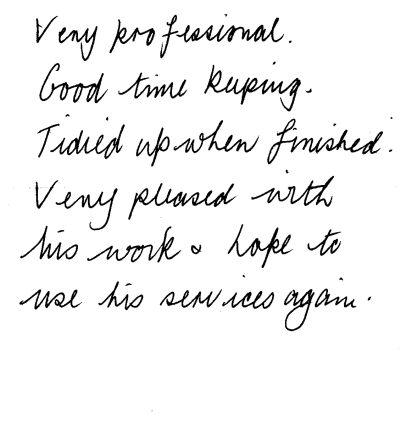 Very professional.
Good time keeping.
Tidied up when finished.
Very pleased with
his work & hope to
use his services again.